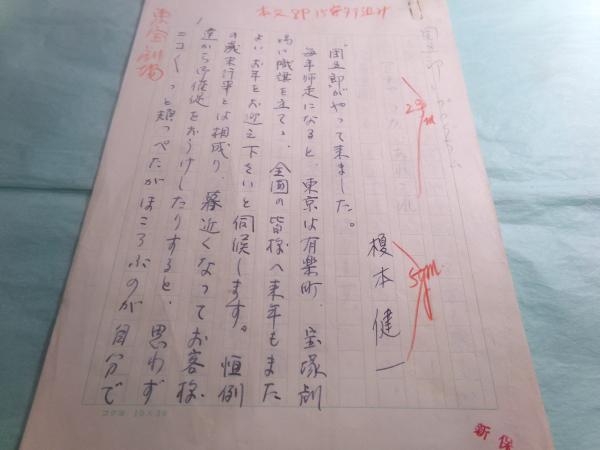 本文8P15字
東宝劇場
榎本健一
団五郎がやって来ました。
毎年師走になると、東京は有楽町、宝塚劇
場に職旗を立て、全国の皆様へ来年もまた
よいお年をお迎え下さいと伺候します。恒例
の歳末行事とは相成り、暮近くなってお客様
達から御催促をおうけしたりすると、思わず
ニコ〱っと頬っぺたがほころぶのが自分で
コクヨ
新保